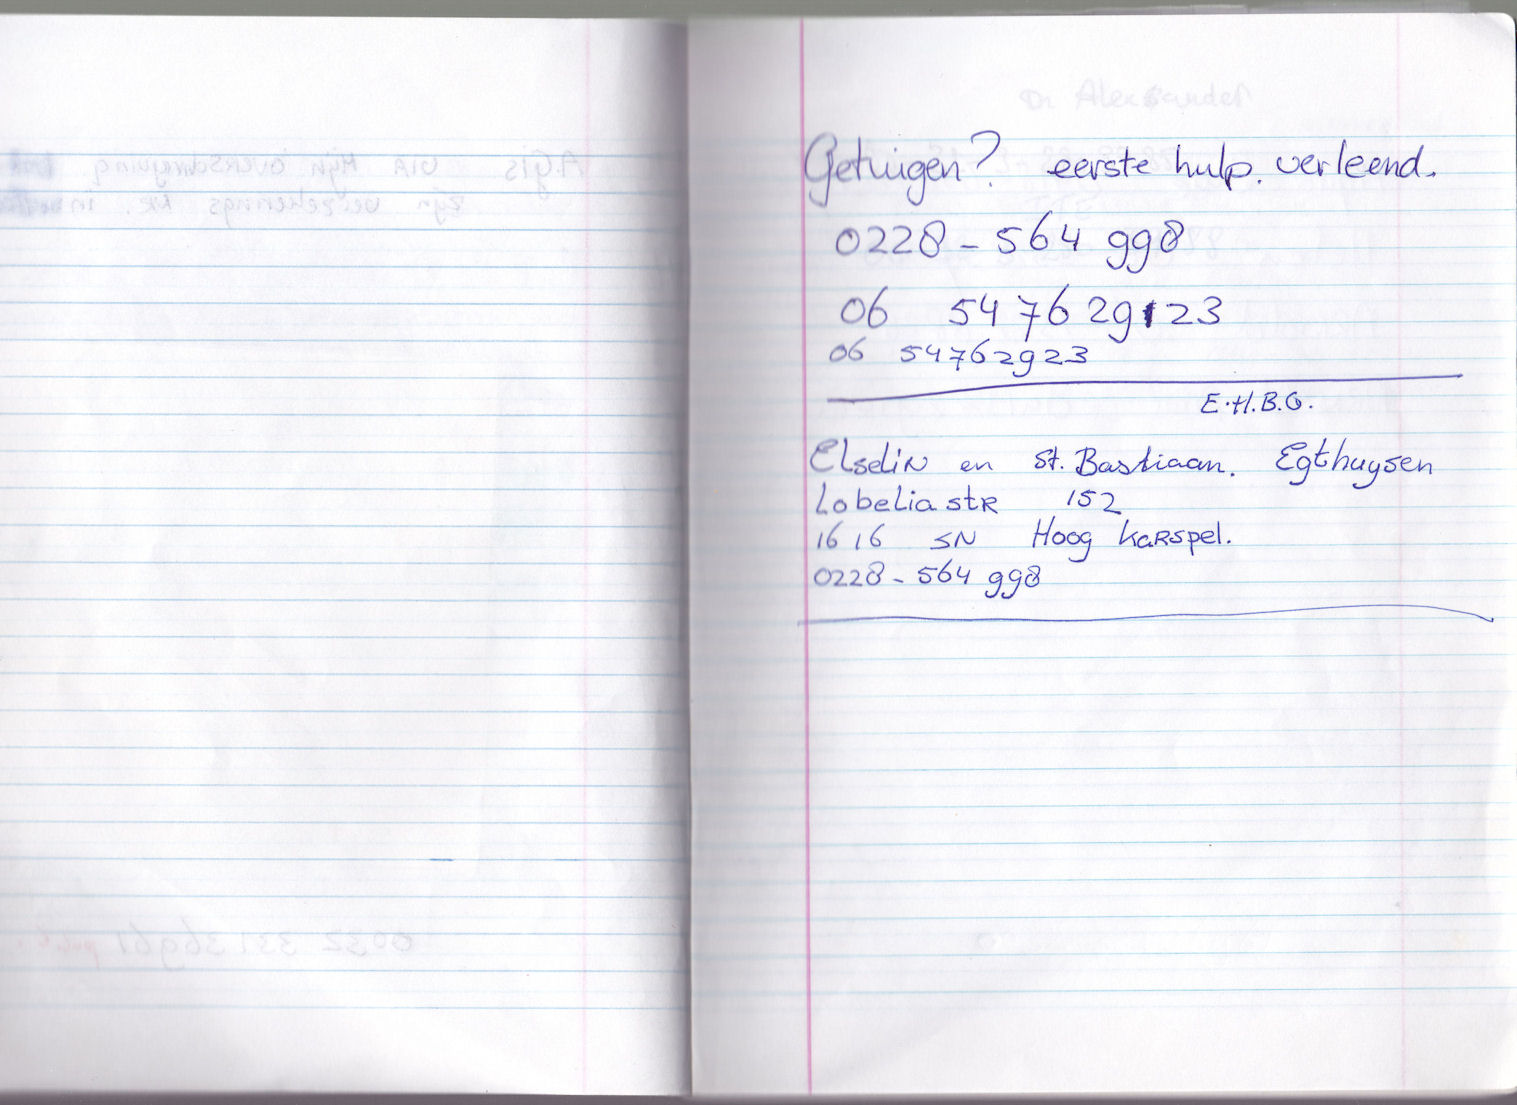 Getuigen? eerste hulp. verleend.
0228 - 564 998
06 54 76 29123
06 54762923
E.H.B.O.
Elselin en St. Bastiaan. Egthuysen
Lobelia str 152
1616 SN Hoog Karspel.
0228 - 564 998